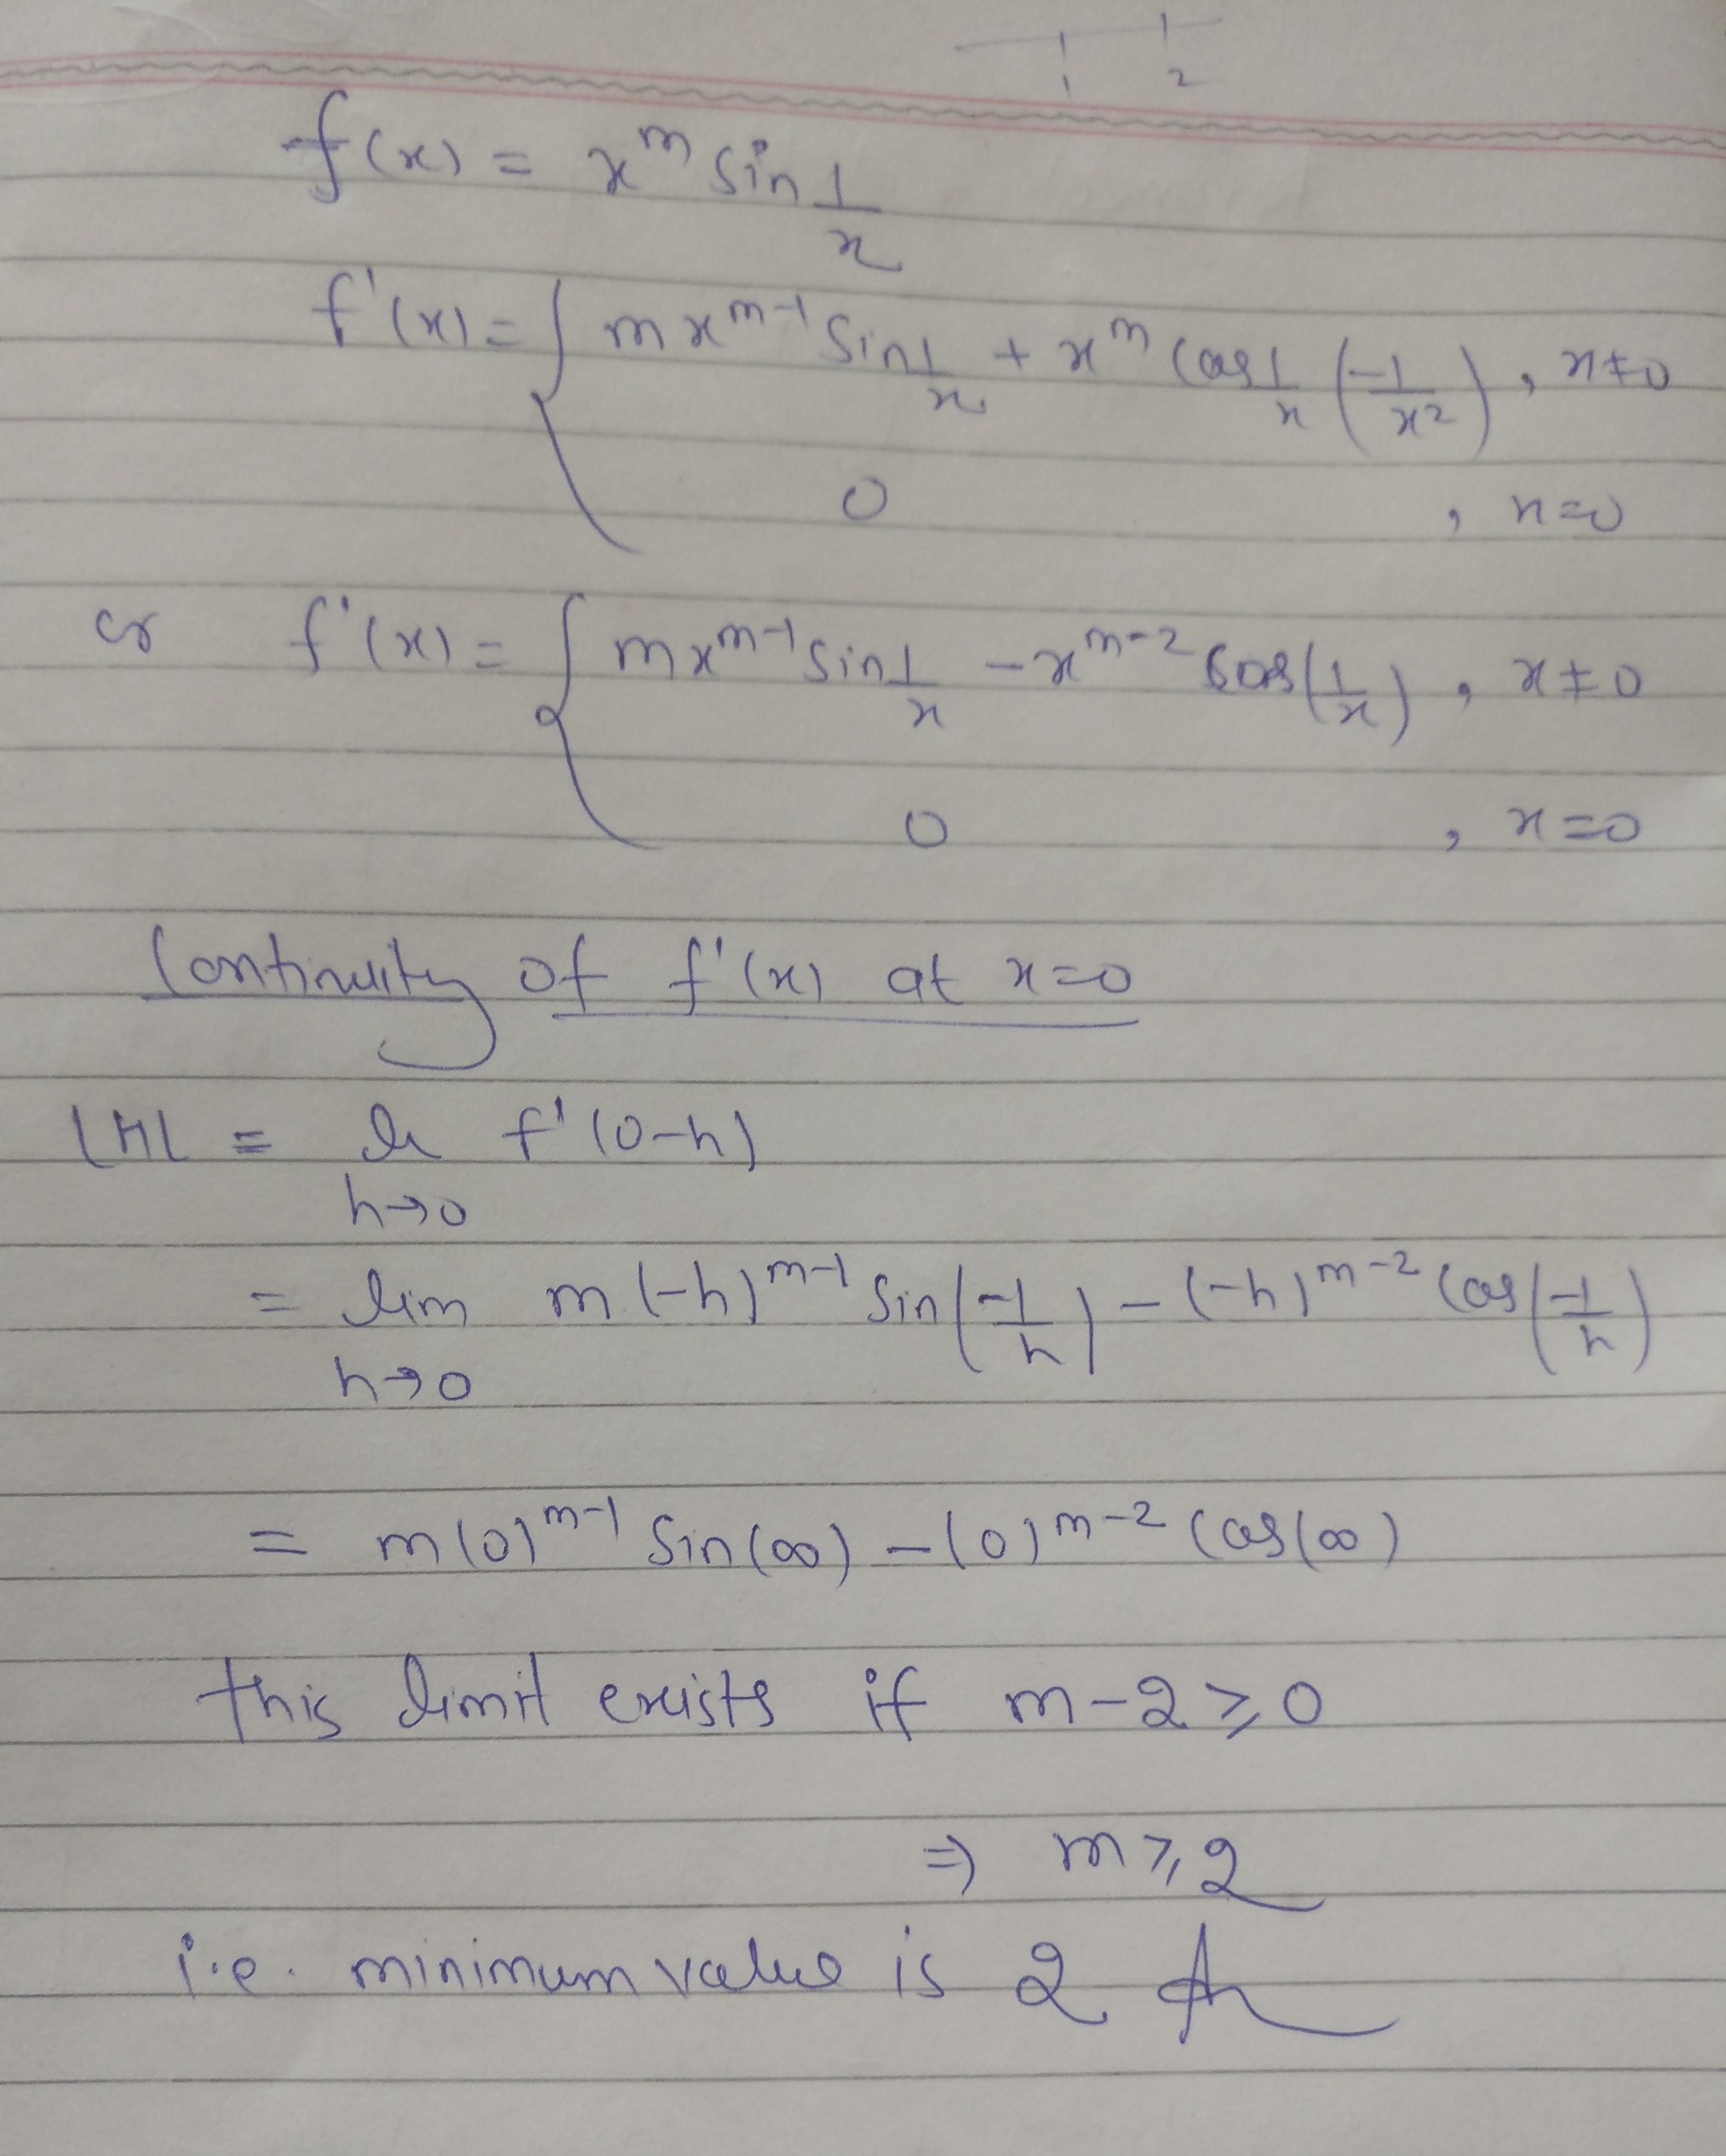 1 2
f(x) = x^m sin 1/x
f'(x) = { m x^{m-1} sin 1/x + x^m cos 1/x (-1/x²), x≠0
0 , x=0
or f'(x) = { m x^{m-1} sin 1/x - x^{m-2} cos(1/x), x≠0
0 , x=0
Continuity of f'(x) at x=0
LHL = f'(0-h)
h→0
= lim m(-h)^{m-1} sin(-1/h) - (-h)^{m-2} cos(-1/h)
h→0
= m(0)^{m-1} sin(∞) - (0)^{m-2} cos(∞)
this limit exists if m-2 ≥ 0
⇒ m ≥ 2
i.e. minimum value is 2